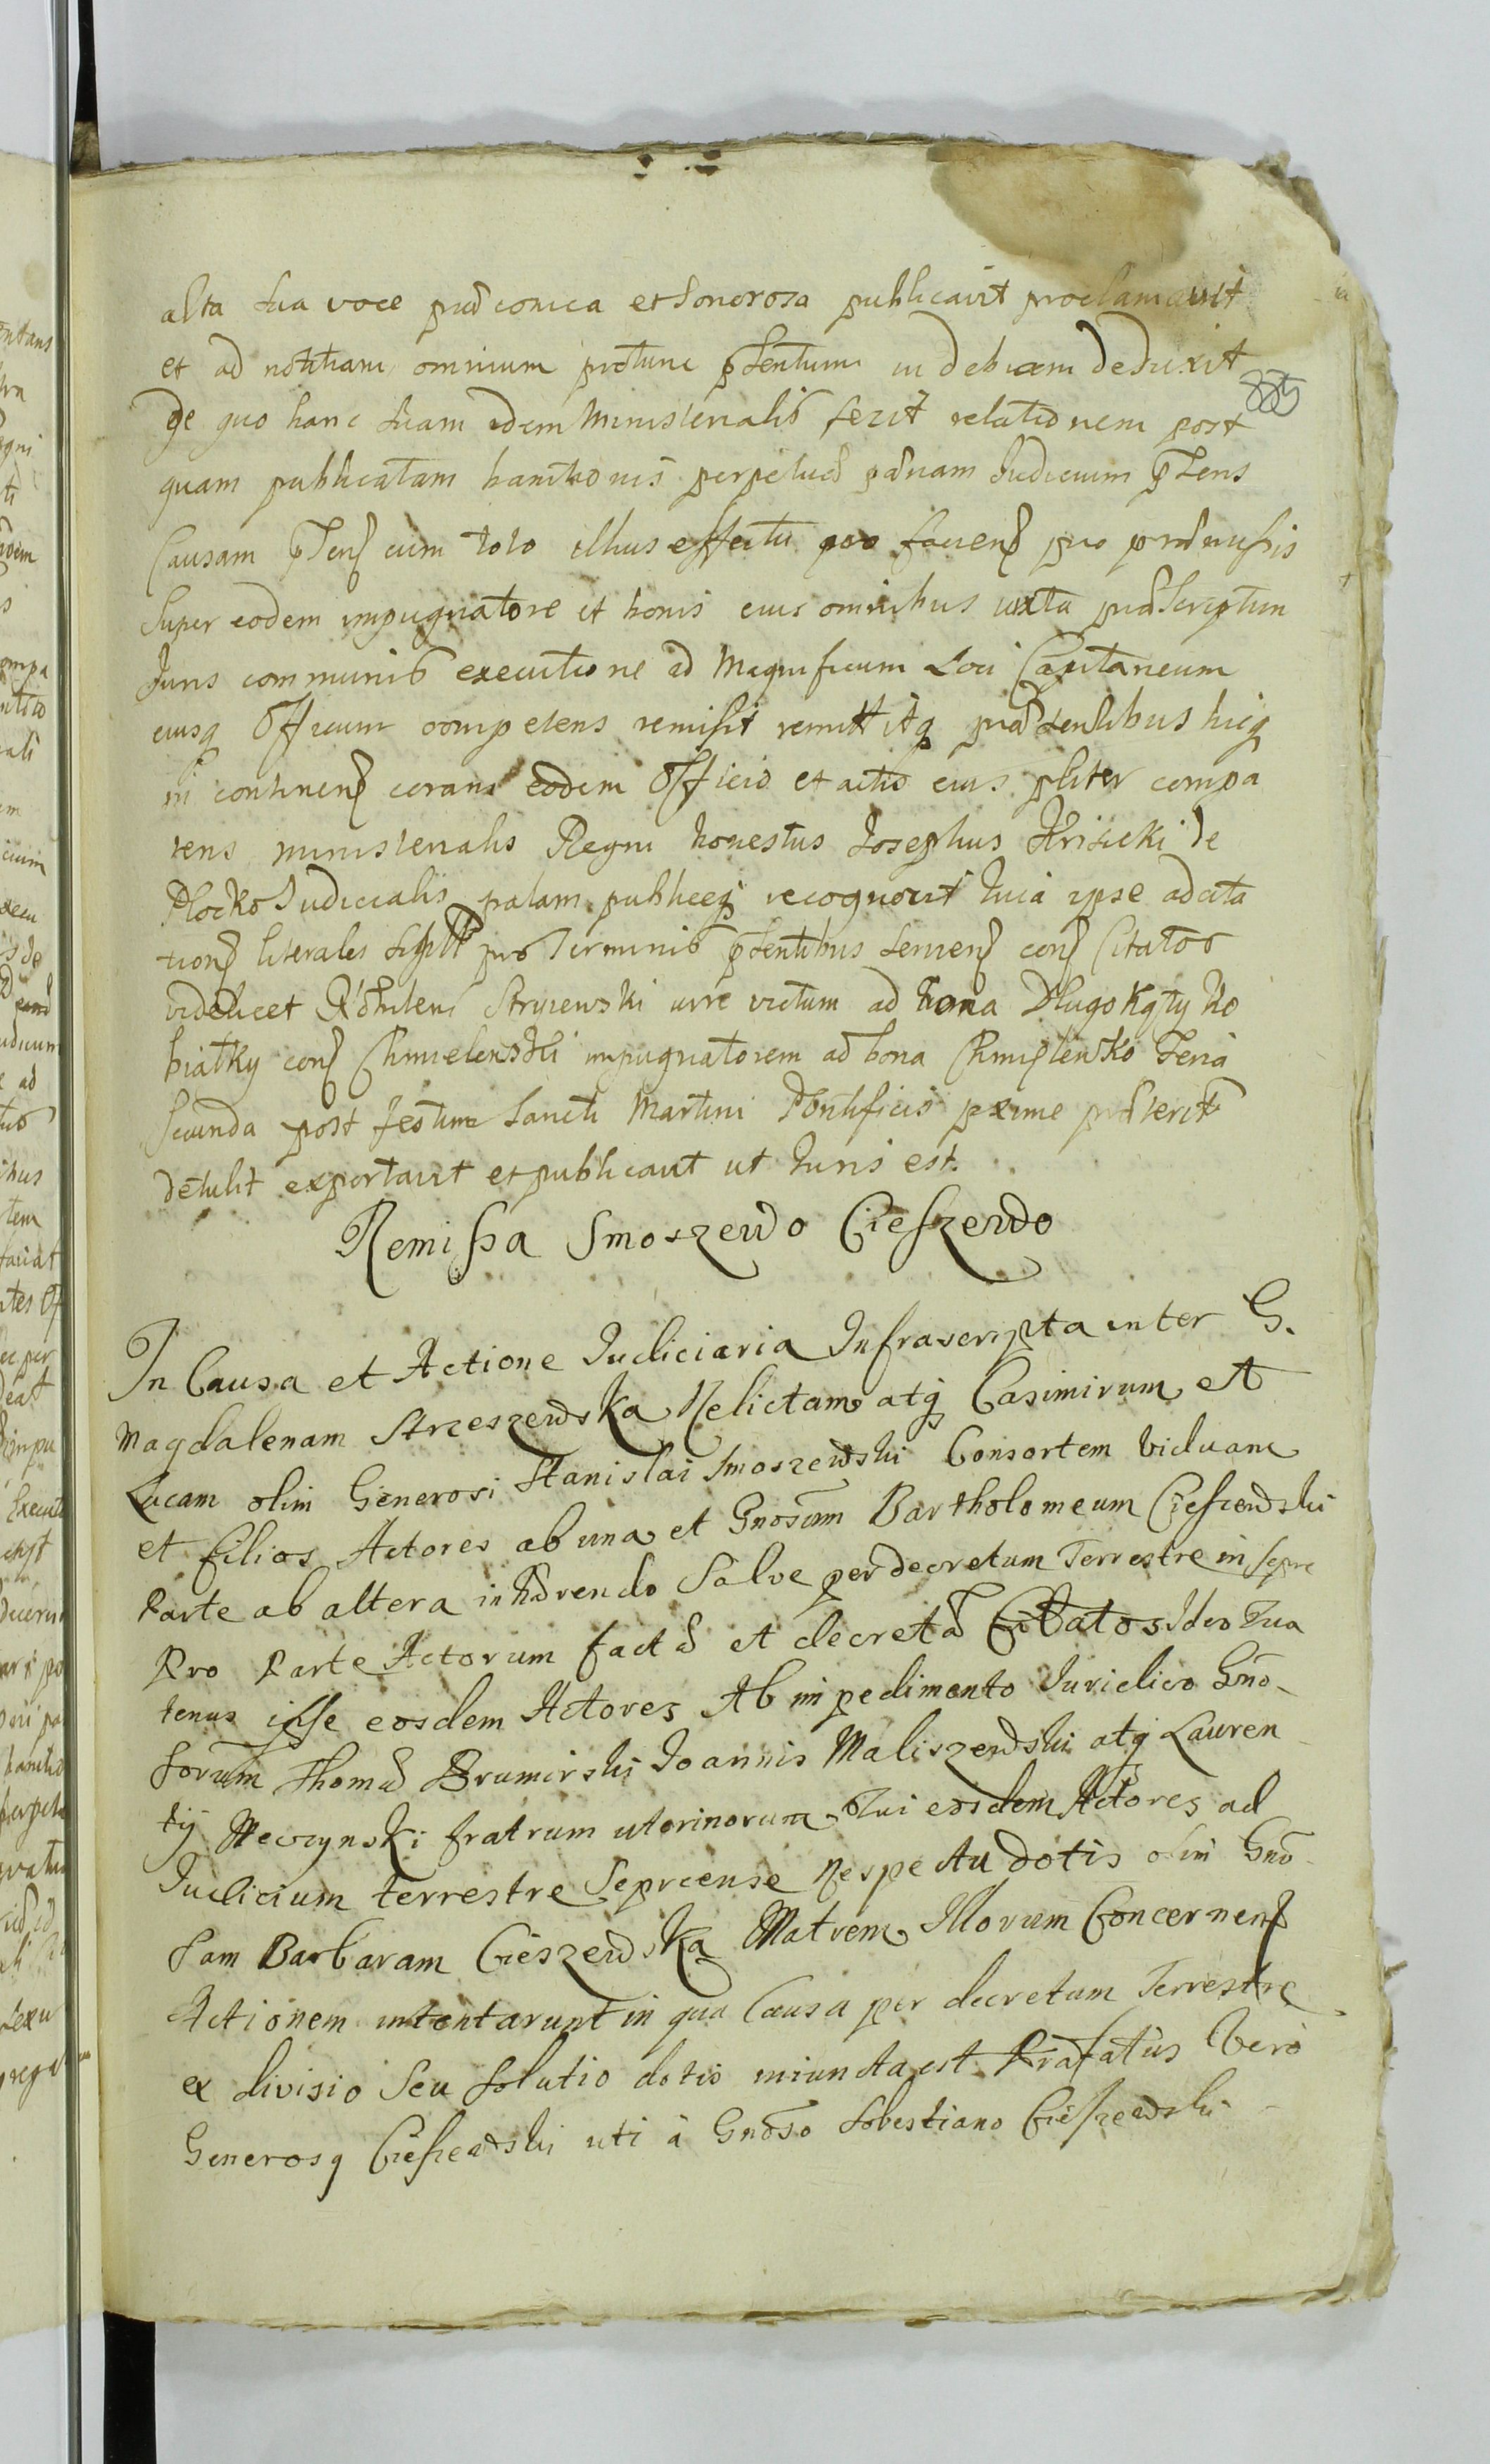 alta sua voce præconica et sonorosa publicavit proclamavit
et ad notitiam omnium protunc pŝentium in debitam deduxit
de quo hanc suam idem Ministerialis fecit relationem post
quam publicatam bannitionis perpetuæ pænam Judicium pŝens
Causam pŝen. cum toto illius effectu pro facien. pro præmissis
super eodem impugnatore et bonis eius omnibus iuxta præscriptum
Juris communis executione ad Magnificum Loci Capitaneum
eiusq Officium competens remisit remittitq præsentibus hicq
in continen. coram eodem Officio et actis eius pŝliter compa
rens ministerialis Regni honestus Josephus de
Plocko Judicialis palam publiceq recognovit quia ipse ad cita
tion. literales pro Terminis pŝentibus servien. con. Citatos
videlicet iure victum ad bona Dlugokąty Ko
białky con. Chmielewski impugnatorem ad bona Chmielewko feria
Secunda post festum Sancti Martini Pontificis pxime præterit
detulit exportavit et publicavit ut Juris est.
Remissa Smoszewo Cieszewo
In Causa et Actione Judiciaria Infrascripta inter G.
Magdalenam Strzeszewska Relictam atq Casimirum et
Lucam olim Generosi Stanislai Smoszewski Consortem viduam
et filios Actores ab una et Gnosum Bartholomeum Cieszewski
Parte ab altera inhærendo Salvæ per decretum Terrestre in Sepre
Pro Parte Actorum factæ et decretæ Citatos Ideo Qua
tenus ipse eosdem Actores Ab impedimento Juridico Gno-
sorum Thomæ Brumirski Joannis Maliszewski atq Lauren
tij Meczynski fratrum uterinorum Qui eosdem Actores ad
Judicium terrestre Seprcense Respectu dotis olim Gno
sam Barbaram Cieszewską Matrem Illorum Concernen.
Actionem intentarunt in qua Causa per decretum Terrestre
ex divisio Seu solutio dotis iniuncta est Præfatus vero
Generosq Cieszewski uti à Gnoso Sobestiano Cieszewski